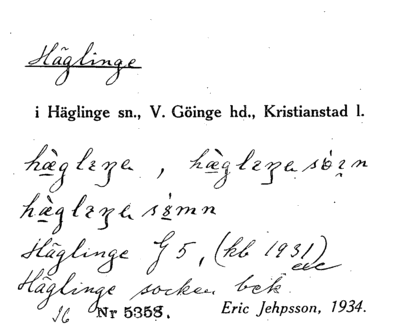 Häglinge
i Häglinge sn., V. Göinge hd., Kristianstad l.
hæ̀glɪŋa, hæ̀glɪŋa
hæ̀glɪŋa
Häglinge G 5, (kb 1931)
Häglinge socken bek
Nr 5358. Eric Jehpsson, 1934.